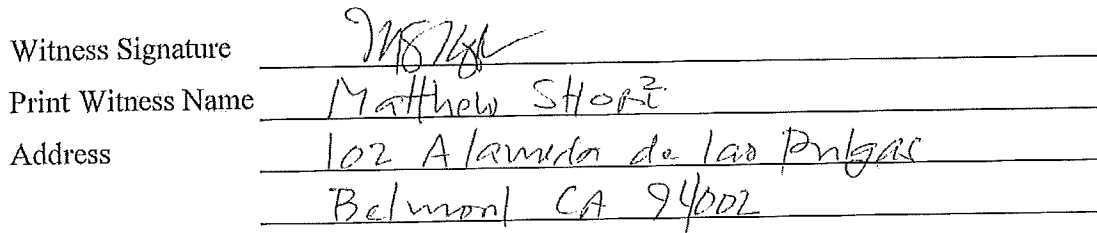 Witness Signature
Print Witness Name Matthew SHORT
Address 102 Alameda de las Pulgas
Belmont CA 94002